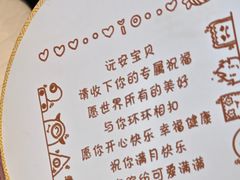 沅安宝贝
请收下你的专属祝福
愿世界所有的美好
与你环环相扣
愿你开心快乐 幸福健康
祝你满月快乐
给可爱满满